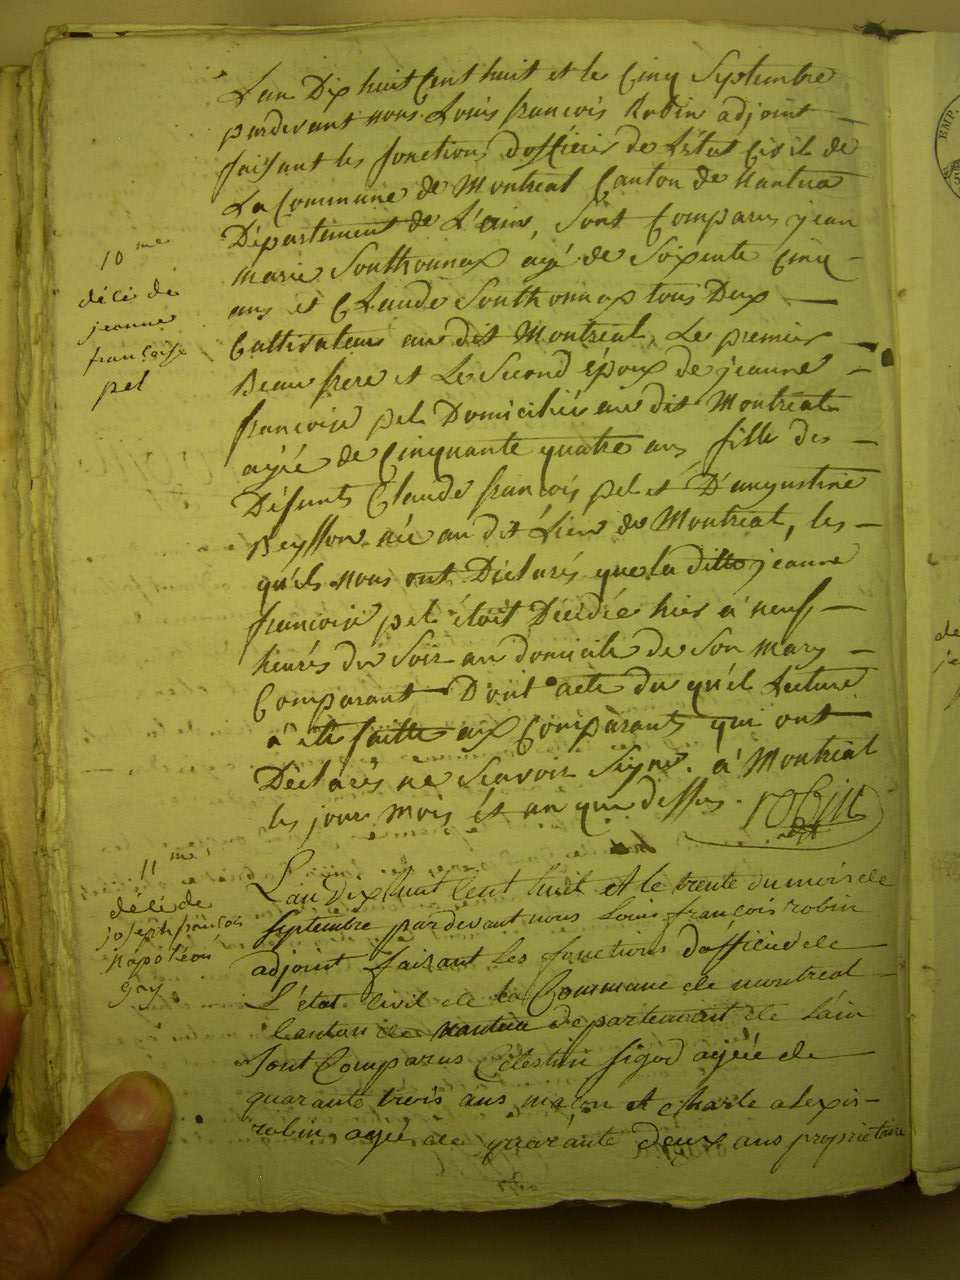 L'an Dix huit Cent huit et le Cinq Septembre
pardevant nous Louis françois Robin adjoint
faisant les fonctions d'officier de L'état Civil de
La Commune de Montreal Canton de Nantua
Département de L'ain, sont Comparus jean
marie Southonnax agé de soixente Cinq
ans et Claude Southonnax tous Deux
Cultivateurs au dit Montreal, Le premier
Beau frere et Le Second époux de jeanne
françoise pel Domiciliée au dit Montreal
agée de Cinquante quatre ans fille de
Défunts Claude françois pel et D'augustine
Beysson née au dit Lieu de Montreal, les
quels nous ont Déclarés que la ditte jeanne
françoise pel étoit Décédée hier à neuf
heures du Soir au domicile de Son mary
Comparant Dont acte du quel Lecture
a été faitte aux Comparants qui ont
Déclarés ne Scavoir Signer. à Montreal
les jour mois et an que dessus. robin
adjt
10 me
décé de
jeanne
françoise
pel
11 me
décé de
joseph françois
Napoléon
Gay
L'an Dix huit Cent huit et le trente du mois de
Septembre pardevant nous Louis françois robin
adjoint faisant les fonctions d'officier de
L'état Civil de la Commune de montreal
Canton de nantua departement de L'ain
Sont Comparus Célestin sigod agée de
quarante trois ans maçon et Charle alexis
robin agée de quarante deux ans propriétaire
EMP.
de
je